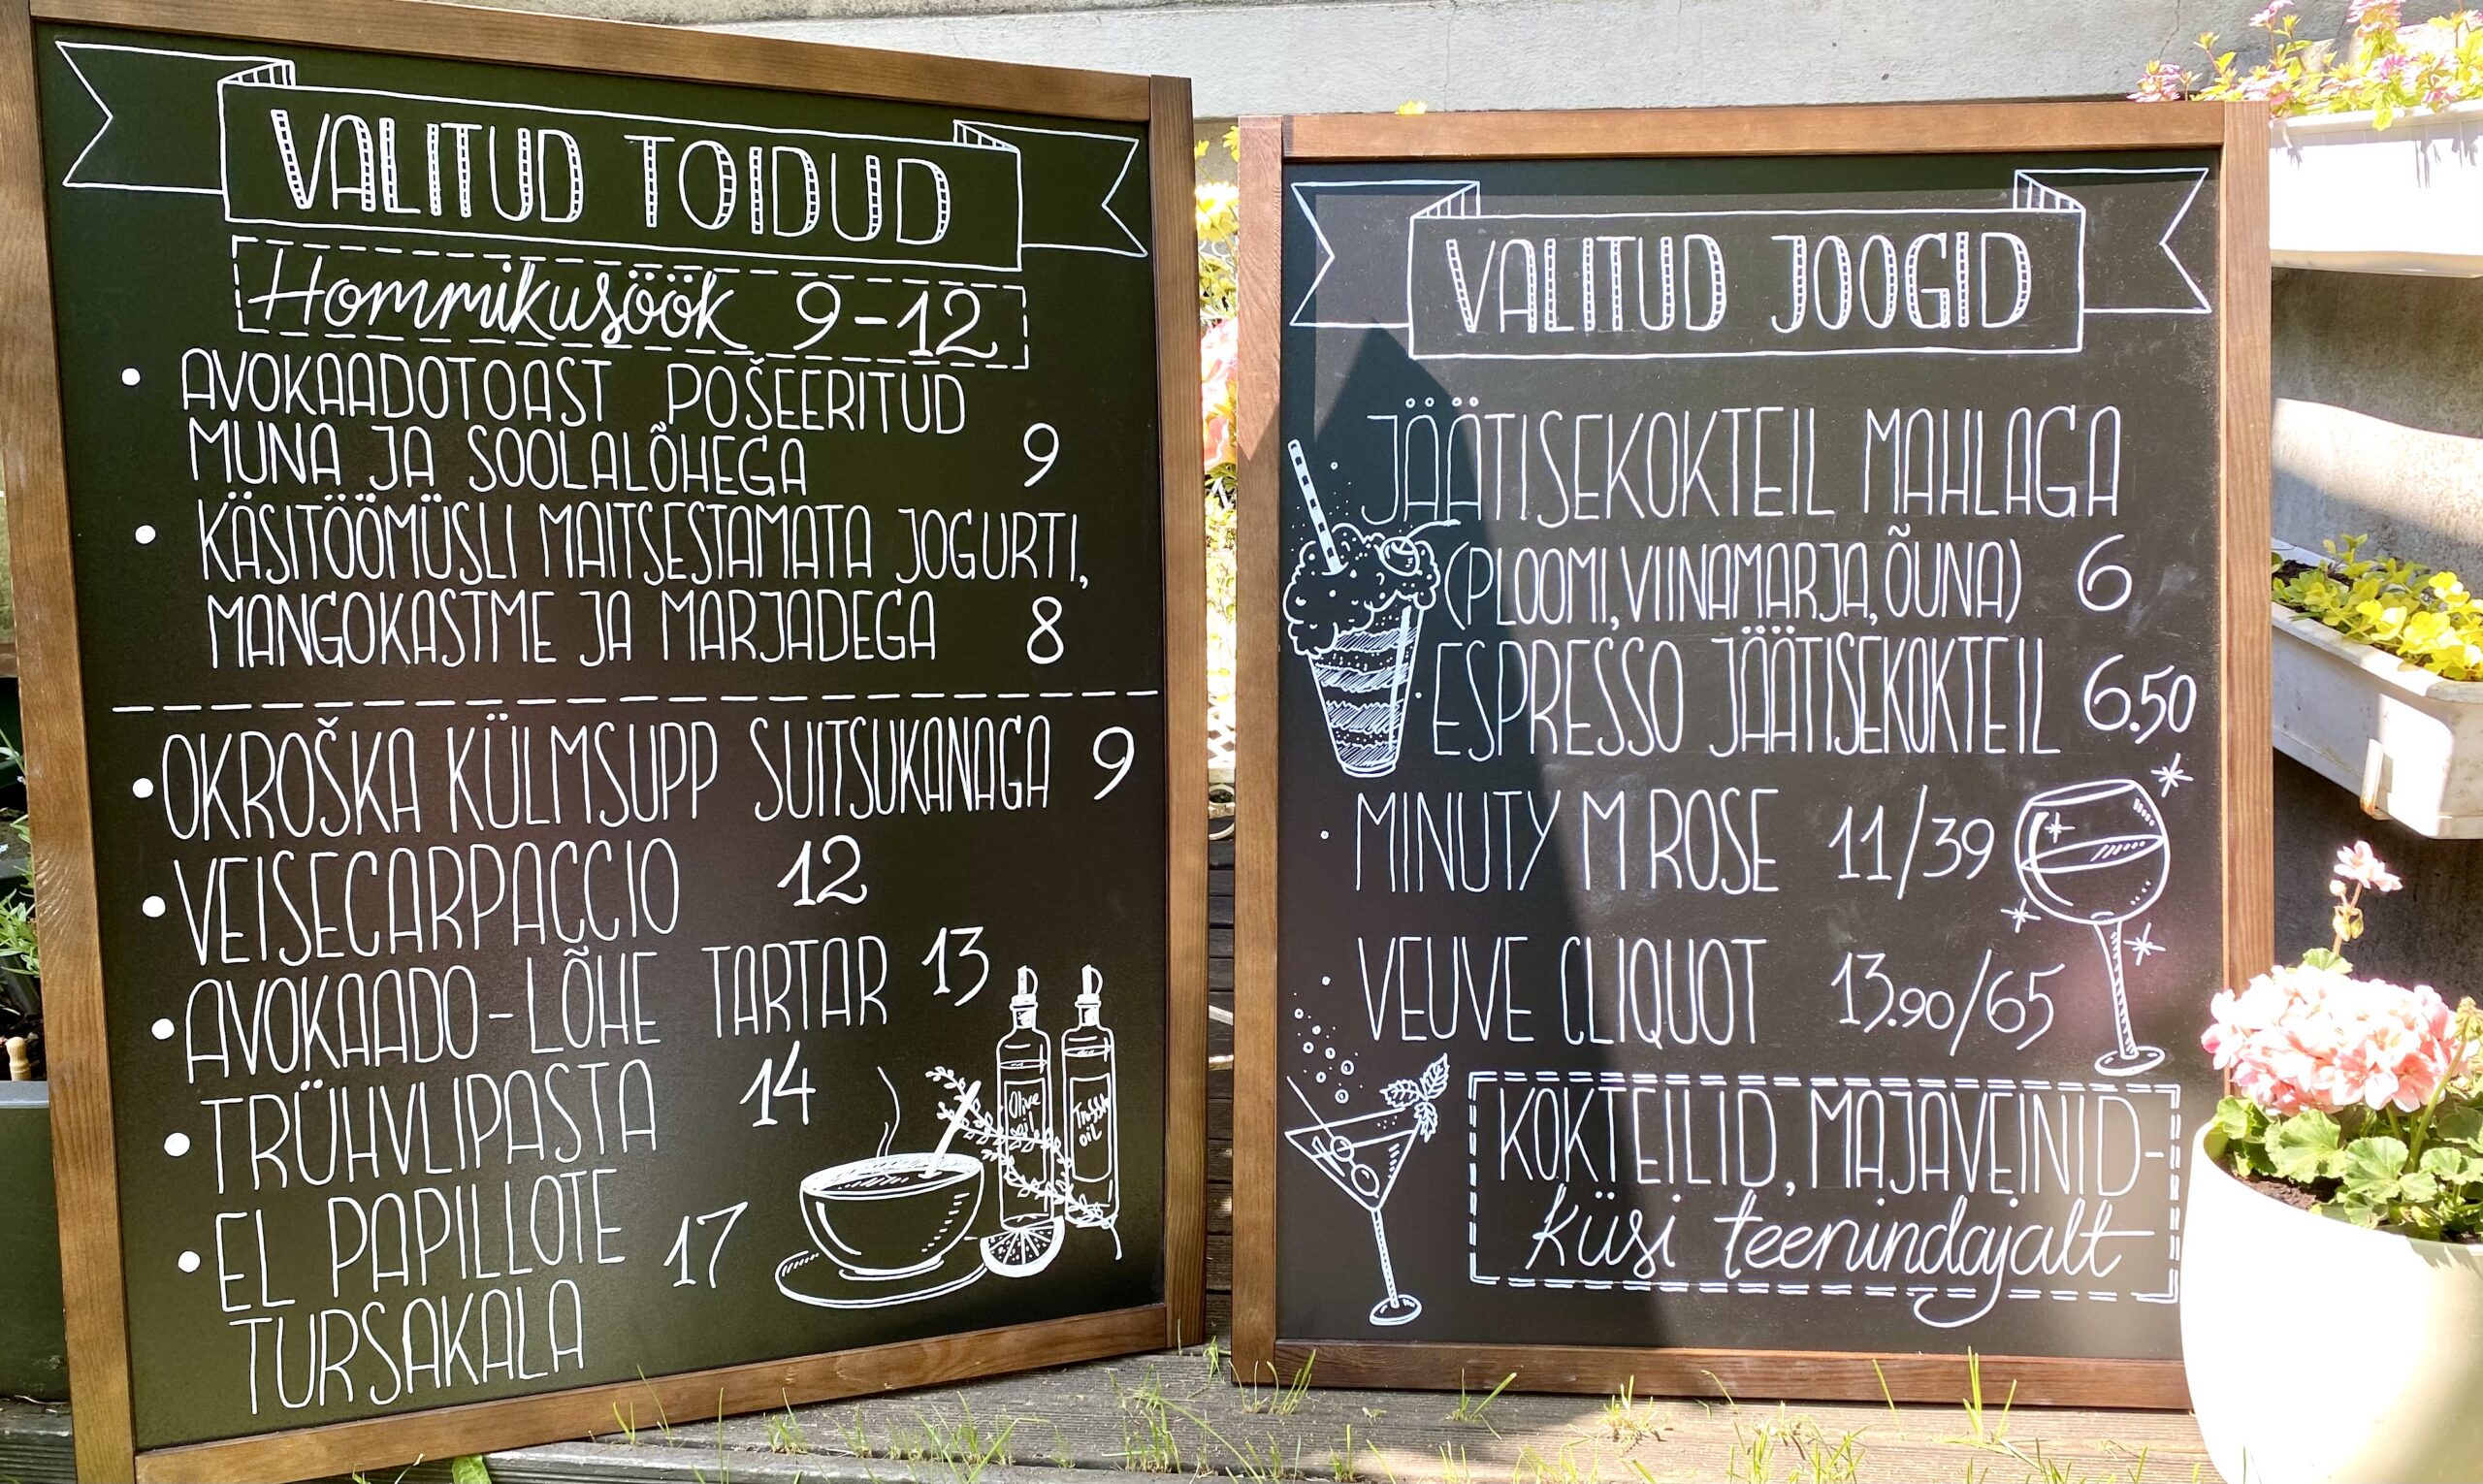 VALITUD TOIDUD
Hommikusöök 9-12
• AVOKAADOTOAST POŠEERITUD
MUNA JA SOOLALÕHEGA 9
• KÄSITÖÖMÜSLI MAITSESTAMATA JOGURTI,
MANGOKASTME JA MARJADEGA 8
• OKROŠKA KÜLMSUPP SUITSUKANAGA 9
• VEISECARPACCIO 12
• AVOKAADO-LÕHE TARTAR 13
• TRÜHVLIPASTA 14
• EL PAPILLOTE 17
TURSAKALA
Olive
oil
oil
VALITUD JOOGID
JÄÄTISEKOKTEIL MAHLAGA
(PLOOMI, VIINAMARJA, ÕUNA) 6
• ESPRESSO JÄÄTISEKOKTEIL 6.50
• MINUTY M ROSE 11/39
• VEUVE CLIQUOT 13.90/65
KOKTEILID, MAJAVEINID-
küsi teenindajalt